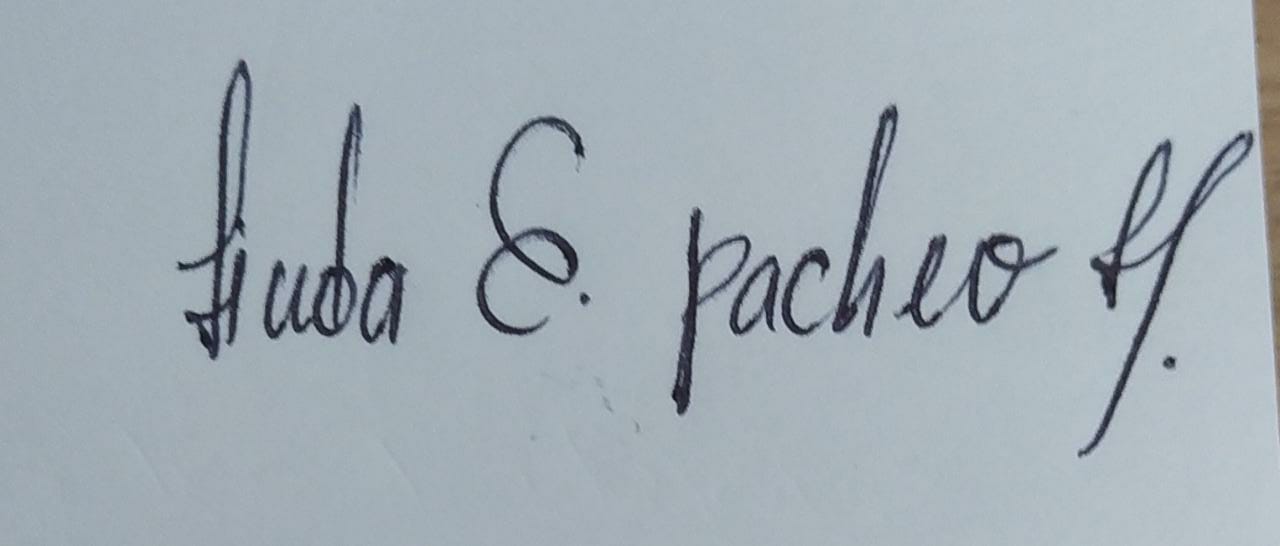 Linda E. pacheco H.